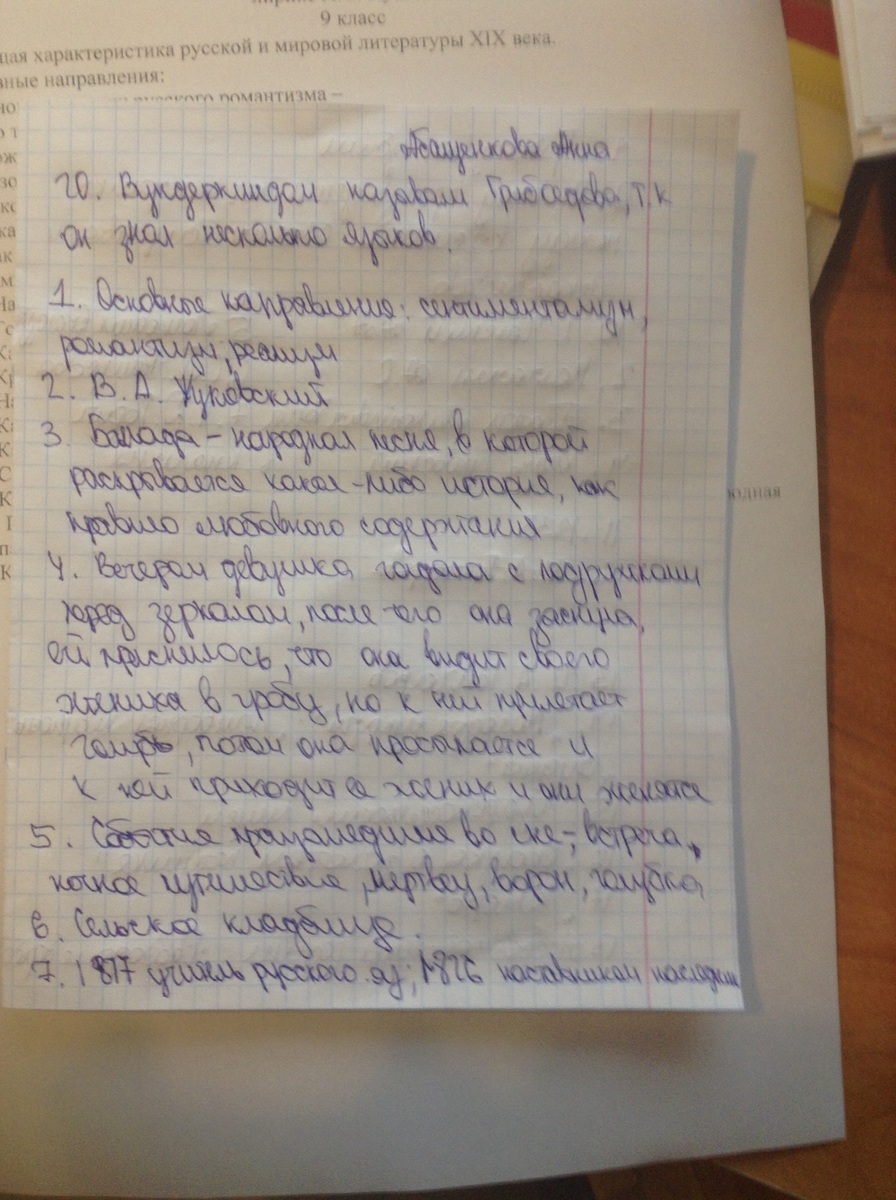 9 класс
характеристика русской и мировой литературы XIX века.
направления:
романтизма –
Анна
20. Вундеркиндом называли Грибоедова, т.к
он знал несколько языков.
1. Основные направления: сентиментализм,
романтизм, реализм
2. В. А. Жуковский
3. Баллада – народная песня, в которой
раскрывается какая-либо история, как
правило любовного содержания
4. Вечером девушка гадала с подружками
перед зеркалом, после чего она заснула,
ей приснилось, что она видит своего
жениха в гробу, но к ней прилетает
голубь, потом она просыпается и
к ней приходит её жених и они женятся
5. События произошедшие во сне-, встреча,
ночное путешествие, мертвец, ворон, голубка,
6. Сельское кладбище.
7. 1817 учитель русского яз; 1826 наставником